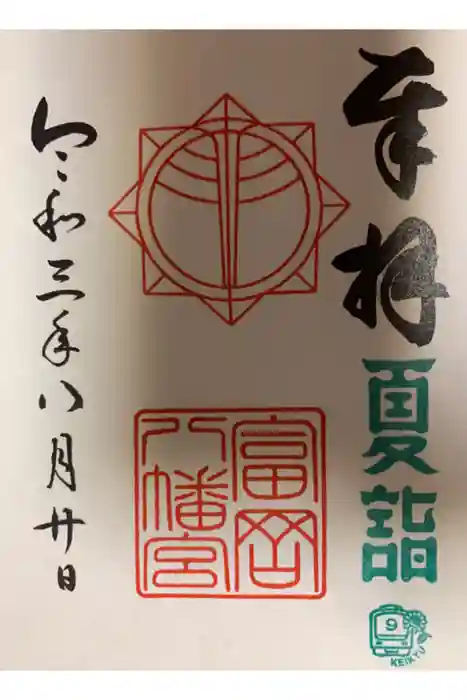 奉拝
夏詣
9
KEIKYU
富岡
八幡宮
令和三年八月廿日